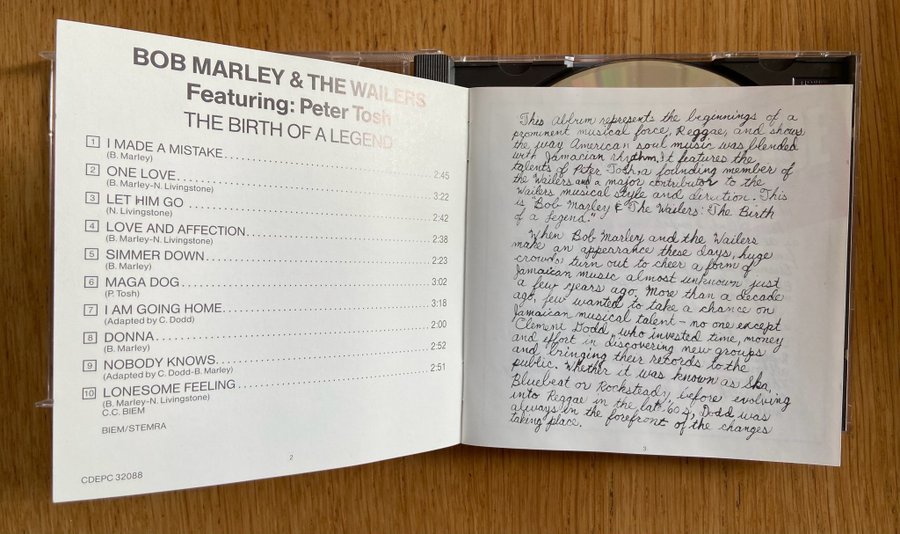 BOB MARLEY & THE WAILERS
Featuring: Peter Tosh
THE BIRTH OF A LEGEND
1 I MADE A MISTAKE 2:45
(B. Marley)
2 ONE LOVE 3:22
(B. Marley-N. Livingstone)
3 LET HIM GO 2:42
(N. Livingstone)
4 LOVE AND AFFECTION 2:38
(B. Marley-N. Livingstone)
5 SIMMER DOWN 2:23
(B. Marley)
6 MAGA DOG 3:02
(P. Tosh)
7 I AM GOING HOME 3:18
(Adapted by C. Dodd)
8 DONNA 2:00
(B. Marley)
9 NOBODY KNOWS 2:52
(Adapted by C. Dodd-B. Marley)
10 LONESOME FEELING 2:51
(B. Marley-N. Livingstone)
C.C. BIEM
BIEM/STEMRA
2
CDEPC 32088
This Album represents the beginnings of a
prominent musical force, Reggae, and shows
the way American soul music was blended
with Jamacian rhythm. It features the
talents of Peter Tosh, a founding member of
the Wailers and a major contributor to the
Wailers musical style and direction. This
is "Bob Marley & The Wailers: The Birth
of a Legend."
When Bob Marley and the Wailers
make an appearance these days, huge
crowds turn out to cheer a form of
Jamaican music almost unknown just
a few years ago. More than a decade
ago, few wanted to take a chance on
Jamaican musical talent - no one except
Clement Dodd, who invested time, money
and effort in discovering new groups
and bringing their records to the
public. Whether it was known as Ska,
Bluebeat or Rocksteady before evolving
into Reggae in the late '60s, Dodd was
always in the forefront of the changes
taking place.
3